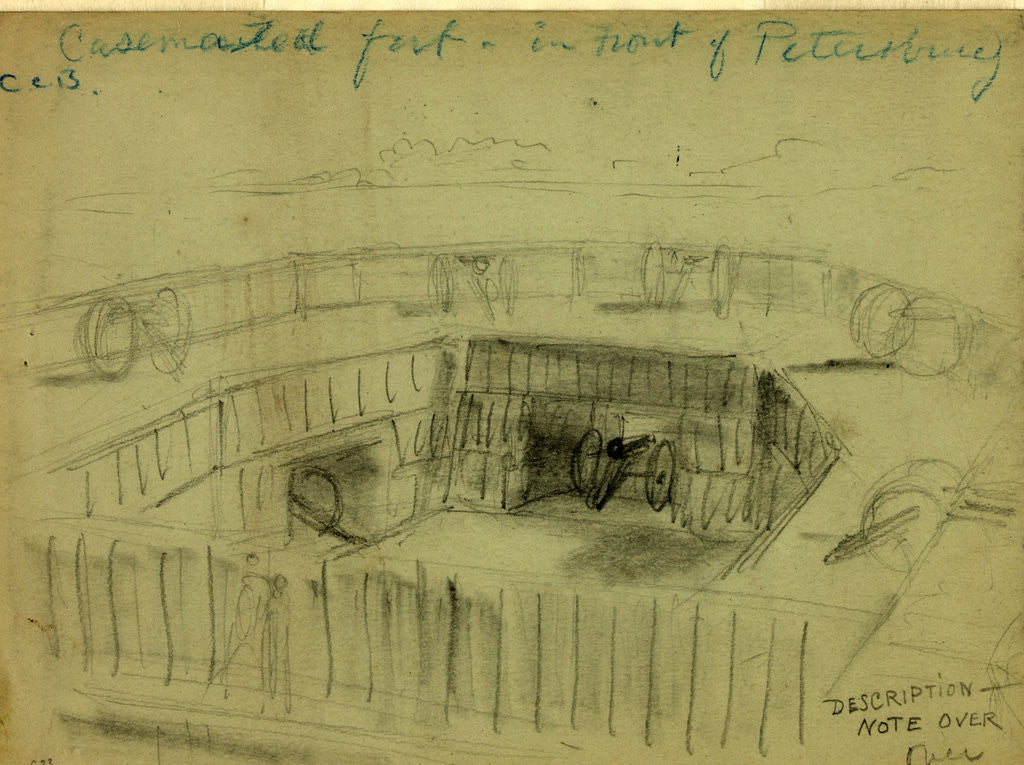 Casemated fort - in front of Petersburg
C.C.B.
DESCRIPTION
NOTE OVER
Over